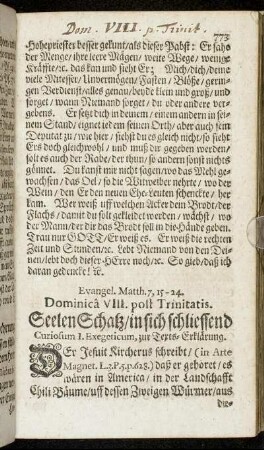 Dom. VIII. p. Trinit.
773
Hohepriester besser gekunt/als dieser Pabst: Er sahe
der Menge/ ihre leere Mägen/ weite Wege/ wenig
Kräffte/ꝛc. das kan und siehet Er; Mich/dich/deine
viele Mitesser/ Unvermögen/ Fasten/ Blöße/ gerin-
gen Verdienst/alles genau/beyde klein und groß/ und
sorget/ wann Niemand sorget/ du oder andere ver-
gebens. Er setzt dich in deinem/ einem andern in sei-
nem Stand/ eignet jedem seinen Orth/ aber auch sein
Deputat zu/ wie hier/ siehst du es gleich nicht/ so siehet
Ers doch gleichwohl/ und muß dir gegeben werden/
solt es auch der Rabe/ der thun/ so andern sonst nichts
gönnet. Du kanst mir nicht sagen/ wo das Mehl ge-
wachsen/ das Oel/ so die Wittweiber nehrte/ wo der
Wein/ den Er den neuen Ehe-Leuten schenckte/ her
kam. Wer weiß uff welchen Acker dein Brodt/ der
Flachs/ damit du solt gekleidet werden/ wächst/ wo
der Mann/ der dir das Brodt soll in die Hände geben.
Trau nur GOTT/ Er weiß es. Er weiß die rechten
Zeit und Stunden/ꝛc. Lebt Niemand von den Dei-
nen/ lebt doch dieser HErre noch/ꝛc. So gieb/ daß ich
daran gedencke! ꝛc.
Evangel. Matth. 7, 15-24.
Dominicâ VIII. post Trinitatis.
Seelen Schatz/ in sich schliessend
Curiosum I. Exegeticum, zur Texts-Erklärung.
DEr Jesuit Kircherus schreibt/ (in Arte
Magnet. L.3.P.5.p.628.) daß er gehöret/ es
wären in America/ in der Landschafft
Chili Bäume/ uff dessen Zweigen Würmer/ aus
die-